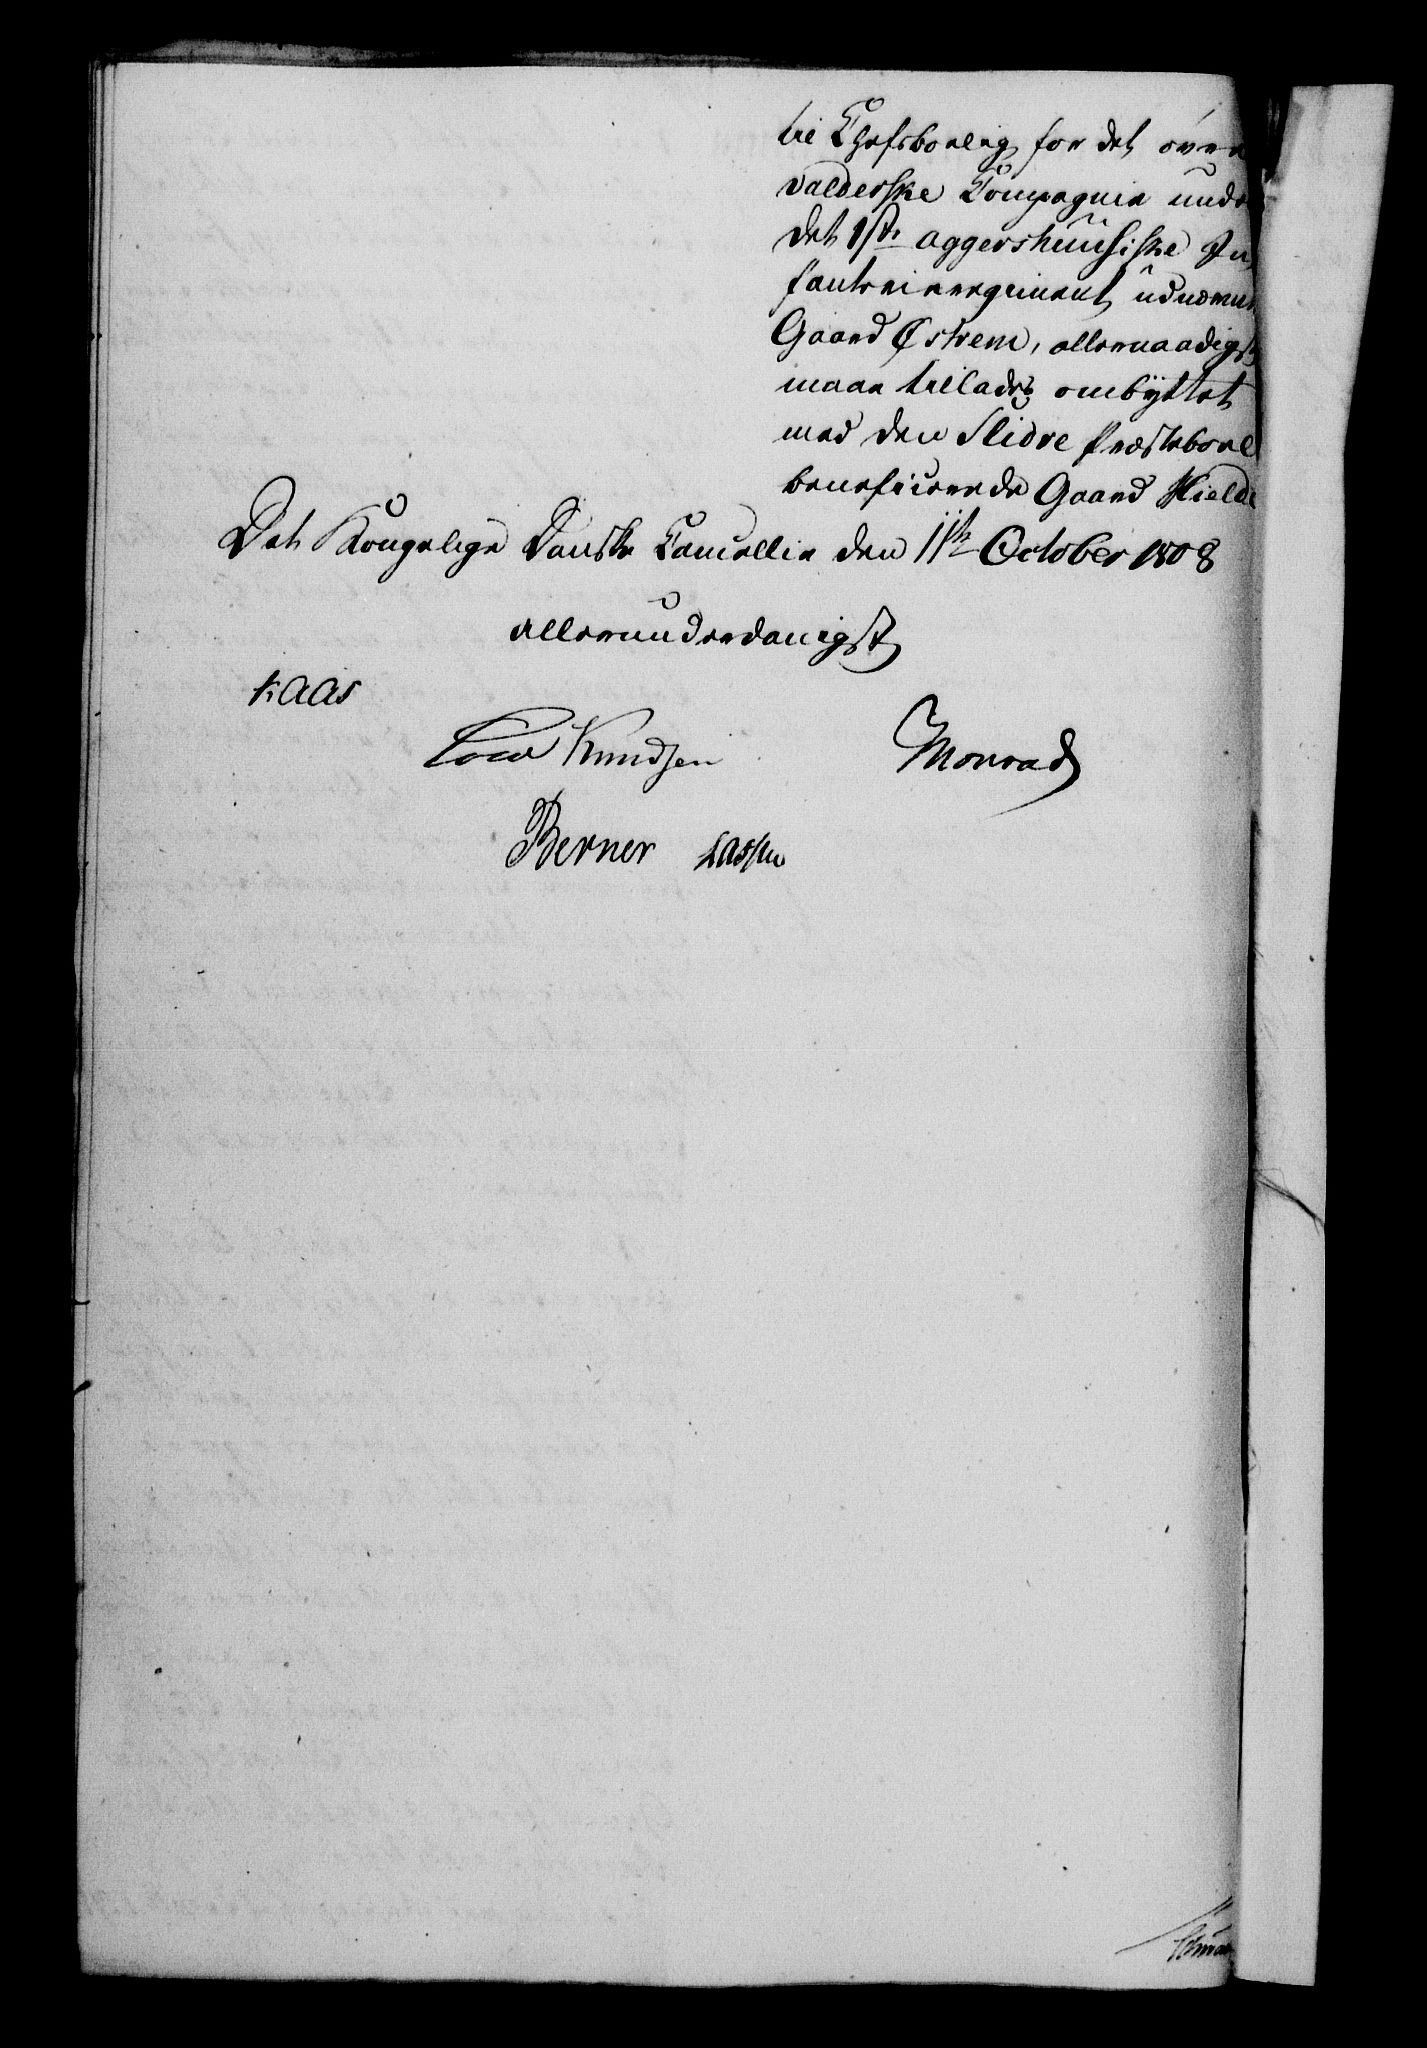 til Chefsboelig for det øvre
Valderske Compagnie unde
det 1ste aggershuusiske In,
fanterieregiment udnævn
Gaard Østrem, allernaadigst
maae tillades ombyttet
med den Slidre Præsteboel
beneficerede Gaard Hielde
Det Kongelige Danske Cancellie den 11te October 1808
allerunderdanigst
Kaas
Cold Knudsen Monrad
Berner Lassen